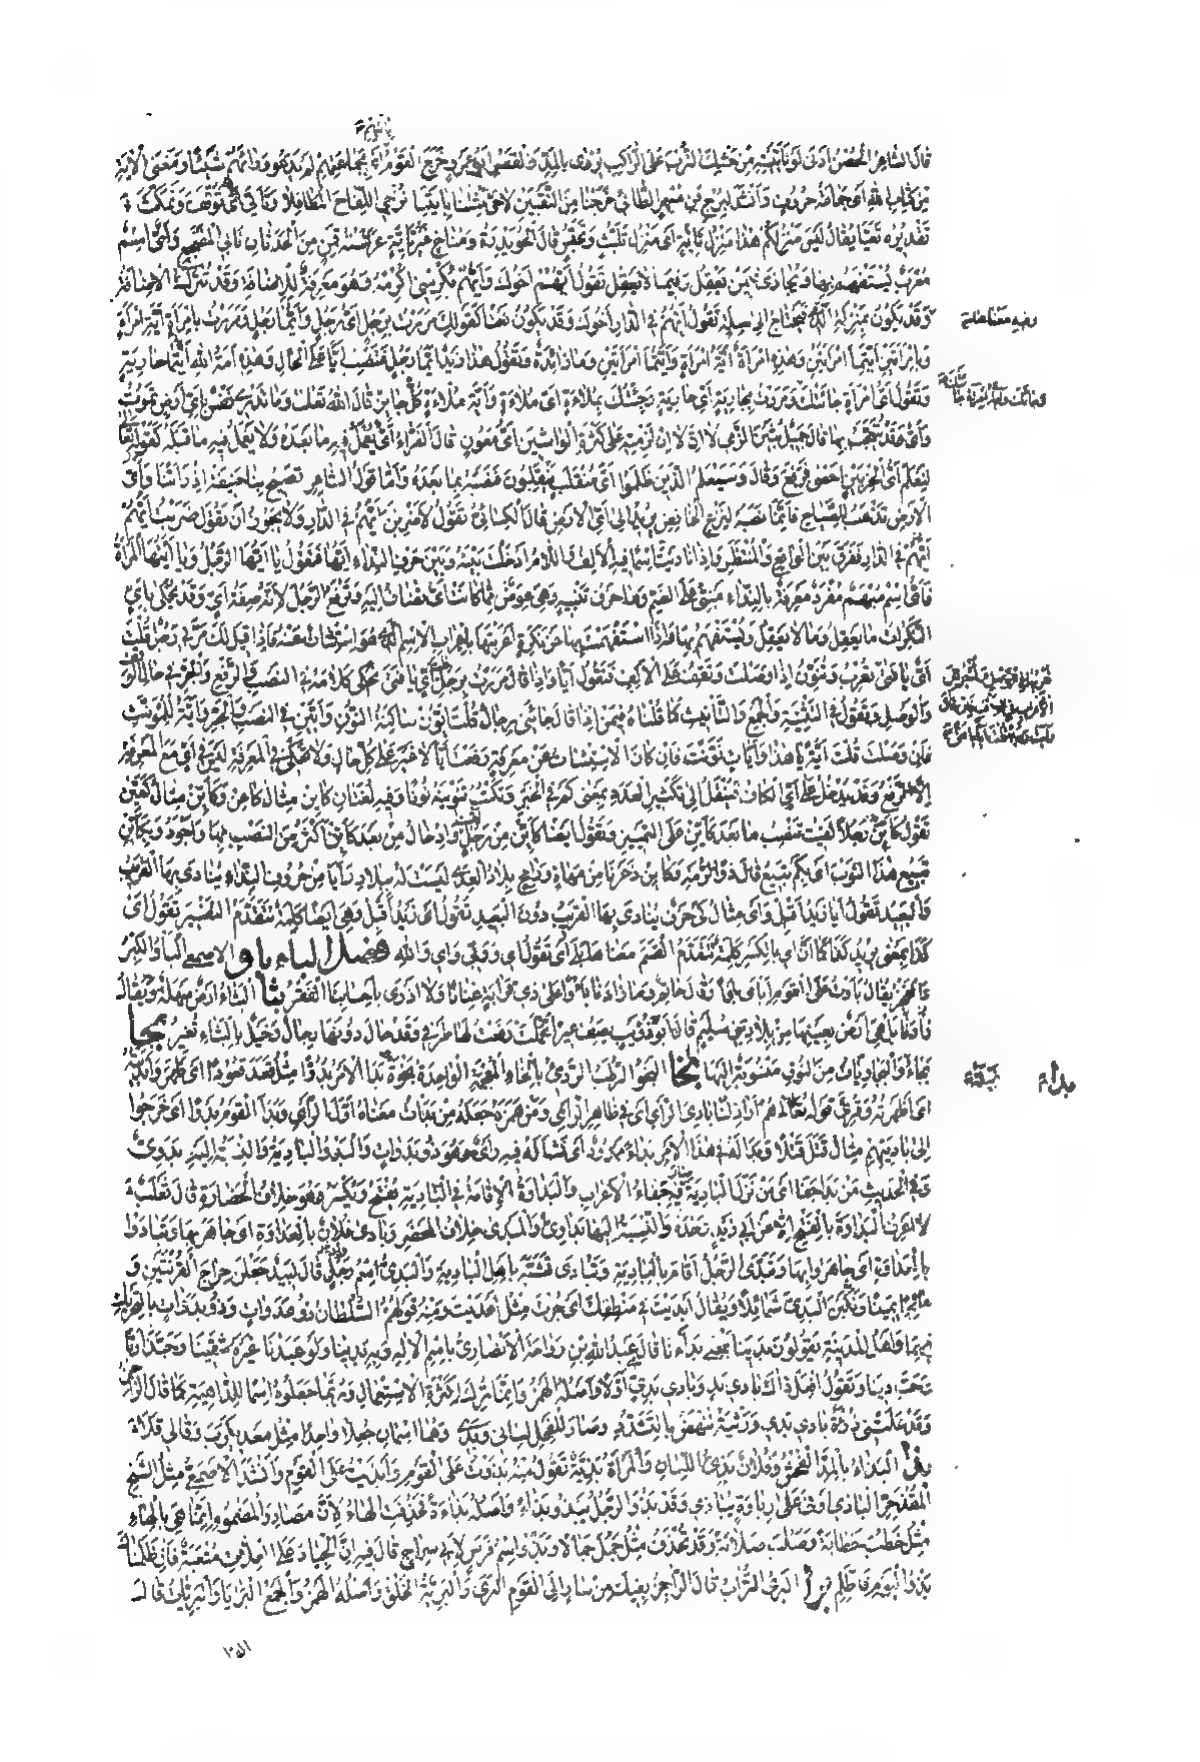 قال الشاعر الحصن أدنى لو تأييته من حثيك الترب على الراكب يروى بالمد والقصر أبو عمرو خرج القوم بآيتهم أي بجماعتهم لم يدعوا وراءهم شيئا ومعنى الآية
من كتاب الله أي جماعة حروف وأنشد لبرج بن مسهر الطائي خرجنا من النقبين لا حي مثلنا بآيتنا نزجي اللقاح المطافلا وتأيى أي توقف وتمكث
تقديره تعيا يقال ليس منزلكم هذا منزل تأية أي منزل تلبث وتحبس قال الحويدرة ومناخ غير تأية عرسته قمن من الحدثان نابي المضجع وأي اسم
معرب يستفهم بها ويجازى فيمن يعقل وفيما لا يعقل تقول أيهم أخوك وأيهم يكرمني أكرمه وهو معرفة للإضافة وقد تترك الإضافة
وقد يكون بمنزلة الذي فيحتاج إلى صلة تقول أيهم في الدار أخوك وقد يكون نعتا كقولك مررت برجل أي رجل وأيما رجل ومررت بامرأة أية امرأة
وبامرأتين أيتما امرأتين وهذه امرأة أية امرأة وأيتما امرأتين وما زائدة وتقول هذا زيد أيما رجل فتنصب أيا على الحال وهذه أمة الله أيتما جارية
وتقول أي امرأة جاءتك ومررت بجارية أي جارية وجئتك بملاءة أي ملاءة وأية ملاءة كل جائز قال الله تعالى وما تدري نفس بأي أرض تموت
وأي قد يتعجب بها قال جميل بثين الزمي لا إن لا إن لزمته على كثرة الواشين أي معون قال الفراء أي يعمل فيه ما بعده ولا يعمل فيه ما قبله كقوله تعالى
لنعلم أي الحزبين أحصى فرفع وقال وسيعلم الذين ظلموا أي منقلب ينقلبون فنصبه بما بعده وأما قول الشاعر تصيح بنا حنيفة إذ رأتنا وأي
الأرض تذهب للصياح فإنما نصبه لنزع الخافض يريد إلى أي الأرض قال الكسائي تقول لأضربن أيهم في الدار ولا يجوز أن تقول ضربت أيهم
في الدار ففرق بين الواقع والمنتظر وإذا ناديت اسما فيه الألف واللام أدخلت بينه وبين حرف النداء أيها فتقول يا أيها الرجل ويا أيتها المرأة
فأي اسم مبهم مفرد معرفة بالنداء مبني على الضم وها حرف تنبيه وهي عوض مما كانت أي تضاف إليه وترفع الرجل لأنه صفة أي وقد يحكى بأي
النكرات ما يعقل وما لا يعقل ويستفهم بها فإذا استفهمت بها عن نكرة أعربتها بإعراب الاسم الذي هو استثبات عنه فإذا قيل لك مر بي رجل قلت
أي يا فتى تعرب وتنون إذا وصلت وتقف على الألف فتقول أيا وإذا قال مررت برجل قلت أي يا فتى تحكي كلامه في النصب والرفع والجر في حال الوقف
والوصل وتقول في التثنية والجمع والتأنيث كما قلناه في من إذا قال جاءني رجال قلت أيون ساكنة النون وأيين في النصب والجر وأية للمؤنث
فإن وصلت قلت أية يا هذا وأيات فإن كان الاستثبات عن معرفة رفعت أيا لا غير على كل حال ولا تحكي في المعرفة ليس في أي مع المعرفة
إلا الرفع وقد تدخل على أي الكاف فتنقل إلى تكثير العدد بمعنى كم في الخبر وتكتب تنوينه نونا وفيه لغتان كائن مثال كاعن وكأين مثال كعين
تقول كأين رجلا لقيت تنصب ما بعد كأين على التمييز وتقول أيضا كأين من رجل لقيت وإدخال من بعد كأين أكثر من النصب بها وأجود وبكأين
تبيع هذا الثوب أي بكم تبيع قال ذو الرمة وكائن ذعرنا من مهاة ورامح بلاد العدى ليست له ببلاد وأيا من حروف النداء ينادى بها القريب
والبعيد تقول أيا زيد أقبل وأي مثال كي حرف ينادى بها القريب دون البعيد تقول أي زيد أقبل وهي أيضا كلمة تتقدم التفسير تقول أي
كذا بمعنى يريد كذا كما أن إي بالكسر كلمة تتقدم القسم معناها بلى تقول إي وربي وإي والله فصل الباء بأو الأصمعي البأو الكبر
والفخر يقال بأوت على القوم أبأى بأوا قال حاتم وما زادنا بأوا على ذي قرابة غنانا ولا أزرى بأحسابنا الفقر بثا البثاء أرض سهلة ويقال
بل هي أرض بعينها من بلاد بني سليم قال أبو ذؤيب يصف عيرا تحملت رفعت لها طرفي وقد حال دونها رجال وخيل بالبثاء تغير بجا
بجاء والبجاويات من النوق منسوبة إليها بخا البخو الرطب الرديء بالخاء المعجمة الواحدة بخوة بدا الأمر بدوا مثل قعد قعودا أي ظهر وأبديته
أي أظهرته وقرئ قوله تعالى هم أراذلنا بادي الرأي أي في ظاهر الرأي ومن همزه جعله من بدأت معناه أول الرأي وبدا القوم بدوا أي خرجوا
إلى باديتهم مثال قتل قتلا وبدا له في هذا الأمر بداء ممدود أي نشأ له فيه رأي وهو ذو بدوات والبدو والبادية والنسبة إليه بدوي
وفي الحديث من بدا جفا أي من نزل البادية صار فيه جفاء الأعراب والبداوة الإقامة في البادية يفتح ويكسر وهو خلاف الحضارة قال ثعلب
لا أعرف البداوة بالفتح إلا عن أبي زيد وحده والنسبة إليها بداوي والمبدى خلاف المحضر وبادى فلان بالعداوة أي جاهر بها وتبادوا
بالعداوة أي جاهروا بها وتبدى الرجل أقام بالبادية وتبادى تشبه بأهل البادية والبدي اسم واد قال لبيد جعلن حراج القرنتين و
عالجا يمينا ونكبن البدي شمائلا ويقال أبديت في منطقك أي جرت مثل أعديت ومنه قولهم السلطان ذو عدوان وذو بدوان بالتحريك
فيهما وأهل المدينة يقولون بدينا بمعنى بدأنا قال عبد الله بن رواحة الأنصاري باسم الإله وبه بدينا ولو عبدنا غيره شقينا وحبذا ربا
وحب دينا وتقول افعل ذاك بادي بد وبادي بدي أي أولا وأصله الهمز وإنما ترك لكثرة الاستعمال وربما جعلوه اسما للداهية كما قال الراجز
وقد علتني ذرأة بادي بدي ورثية تنهض بالتشدد وصار للفحل لساني ويدي وهما اسمان جعلا واحدا مثل معد يكرب وقالي قلا
بذا البذاء بالمد الفحش وفلان بذي اللسان والمرأة بذية تقول منه بذوت على القوم وأبذيت على القوم وأنشد الأصمعي مثل الشيخ
المقذحر الباذي أوفى على رباوة يباذي وقد بذو الرجل يبذو بذاء وأصله بذاءة فحذفت الهاء لأن مصادر المضموم إنما هي بالهاء
مثل خطب خطابة وصلب صلابة وقد تحذف مثل جمل جمالا وبذوة اسم فرس لأبي سراج قال فيه إن الجياد على العلات متعبة فإن ظلمناك
بذو اليوم فاظلم برا البرى التراب قال الراجز بفيك من سار إلى القوم البرى والبرية الخلق وأصله الهمز والجمع البرايا والبريات قال